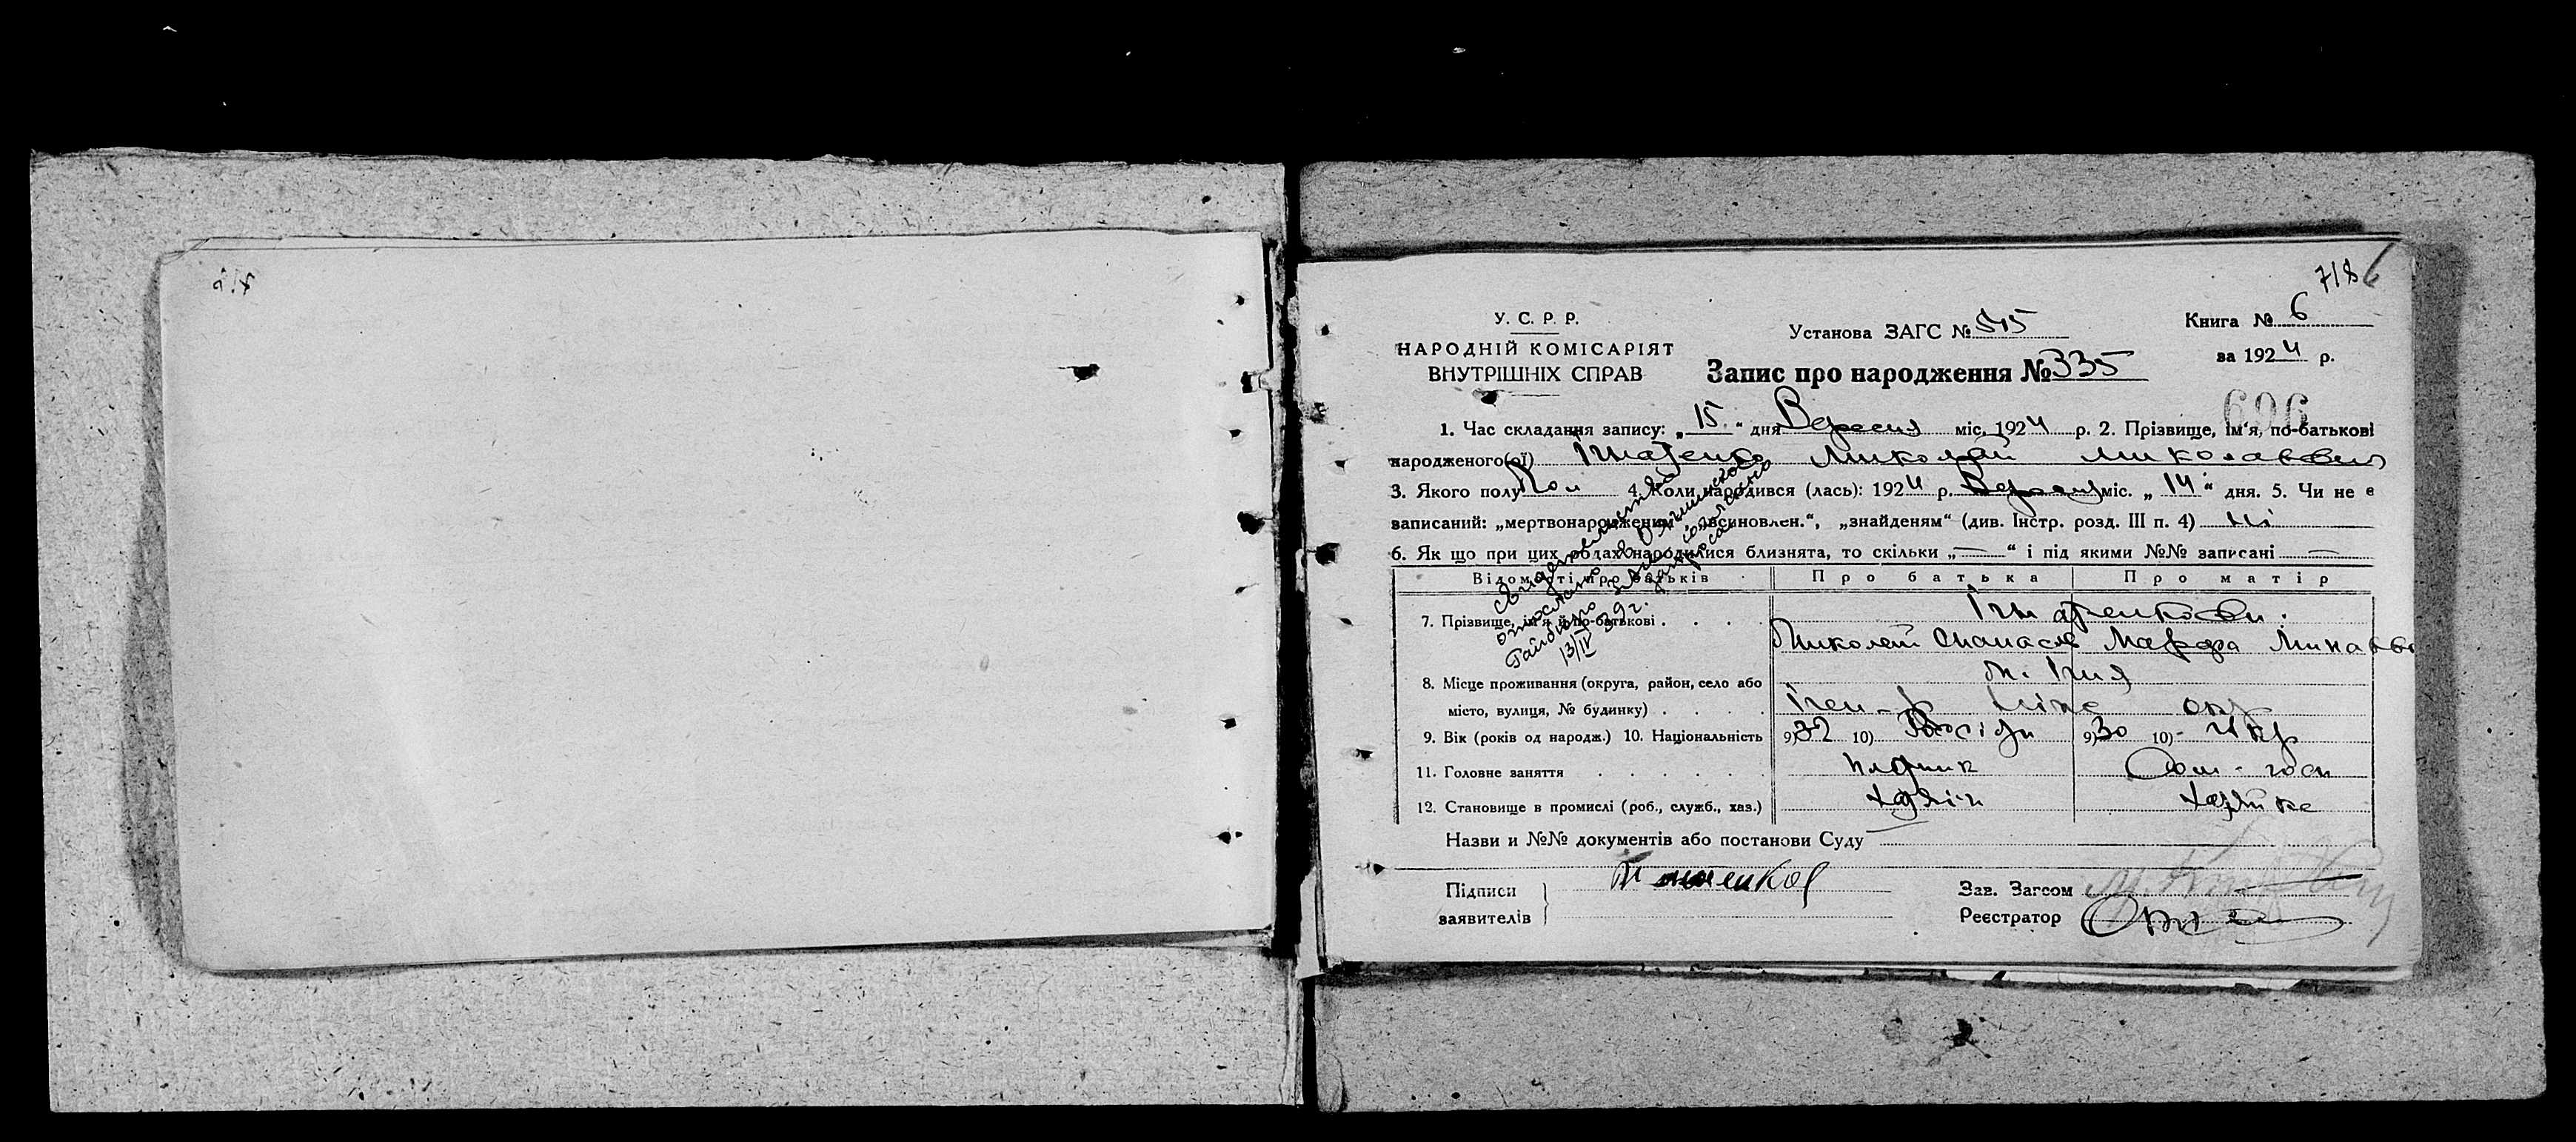 718 6
У. С. Р. Р.
НАРОДНІЙ КОМІСАРІЯТ
ВНУТРІШНІХ СПРАВ
Установа ЗАГС № 515
Запис про народження № 335
Книга № 6
за 1924 р.
696
1. Час складання запису: „15“ дня Вересня міс. 1924 р. 2. Прізвище, ім'я, по-батькові
народженого(ої) Ігнатенко Миколай Миколаевич
3. Якого полу Чол 4. Коли народився (лась): 1924 р. Вересня міс. „14“ дня. 5. Чи не є
записаний: „мертвонародженим“, „всиновлен.“, „знайденям“ (див. Інстр. розд. III п. 4) ні
6. Як що при цих родах народилися близнята, то скільки „—“ і під якими №№ записані —
Відомості про батьків Про батька Про матір
7. Прізвище, ім'я й по-батькові . . . .
Миколай Марфа
8. Місце проживання (округа, район, село або м. Ічня
місто, вулиця, № будинку) . . . . Ічен-р Ніже окр
9. Вік (років од народж.) 10. Національність 9) 32 10) 9) 30 10) Укр
11. Головне заняття . . . . . . Дом-госп
12. Становище в промислі (роб., служб., хаз.) хазяїн хазяйка
Назви и №№ документів або постанови Суду
Підписи
заявителів
Зав. Загсом
Реєстратор
13/IV 39 г.